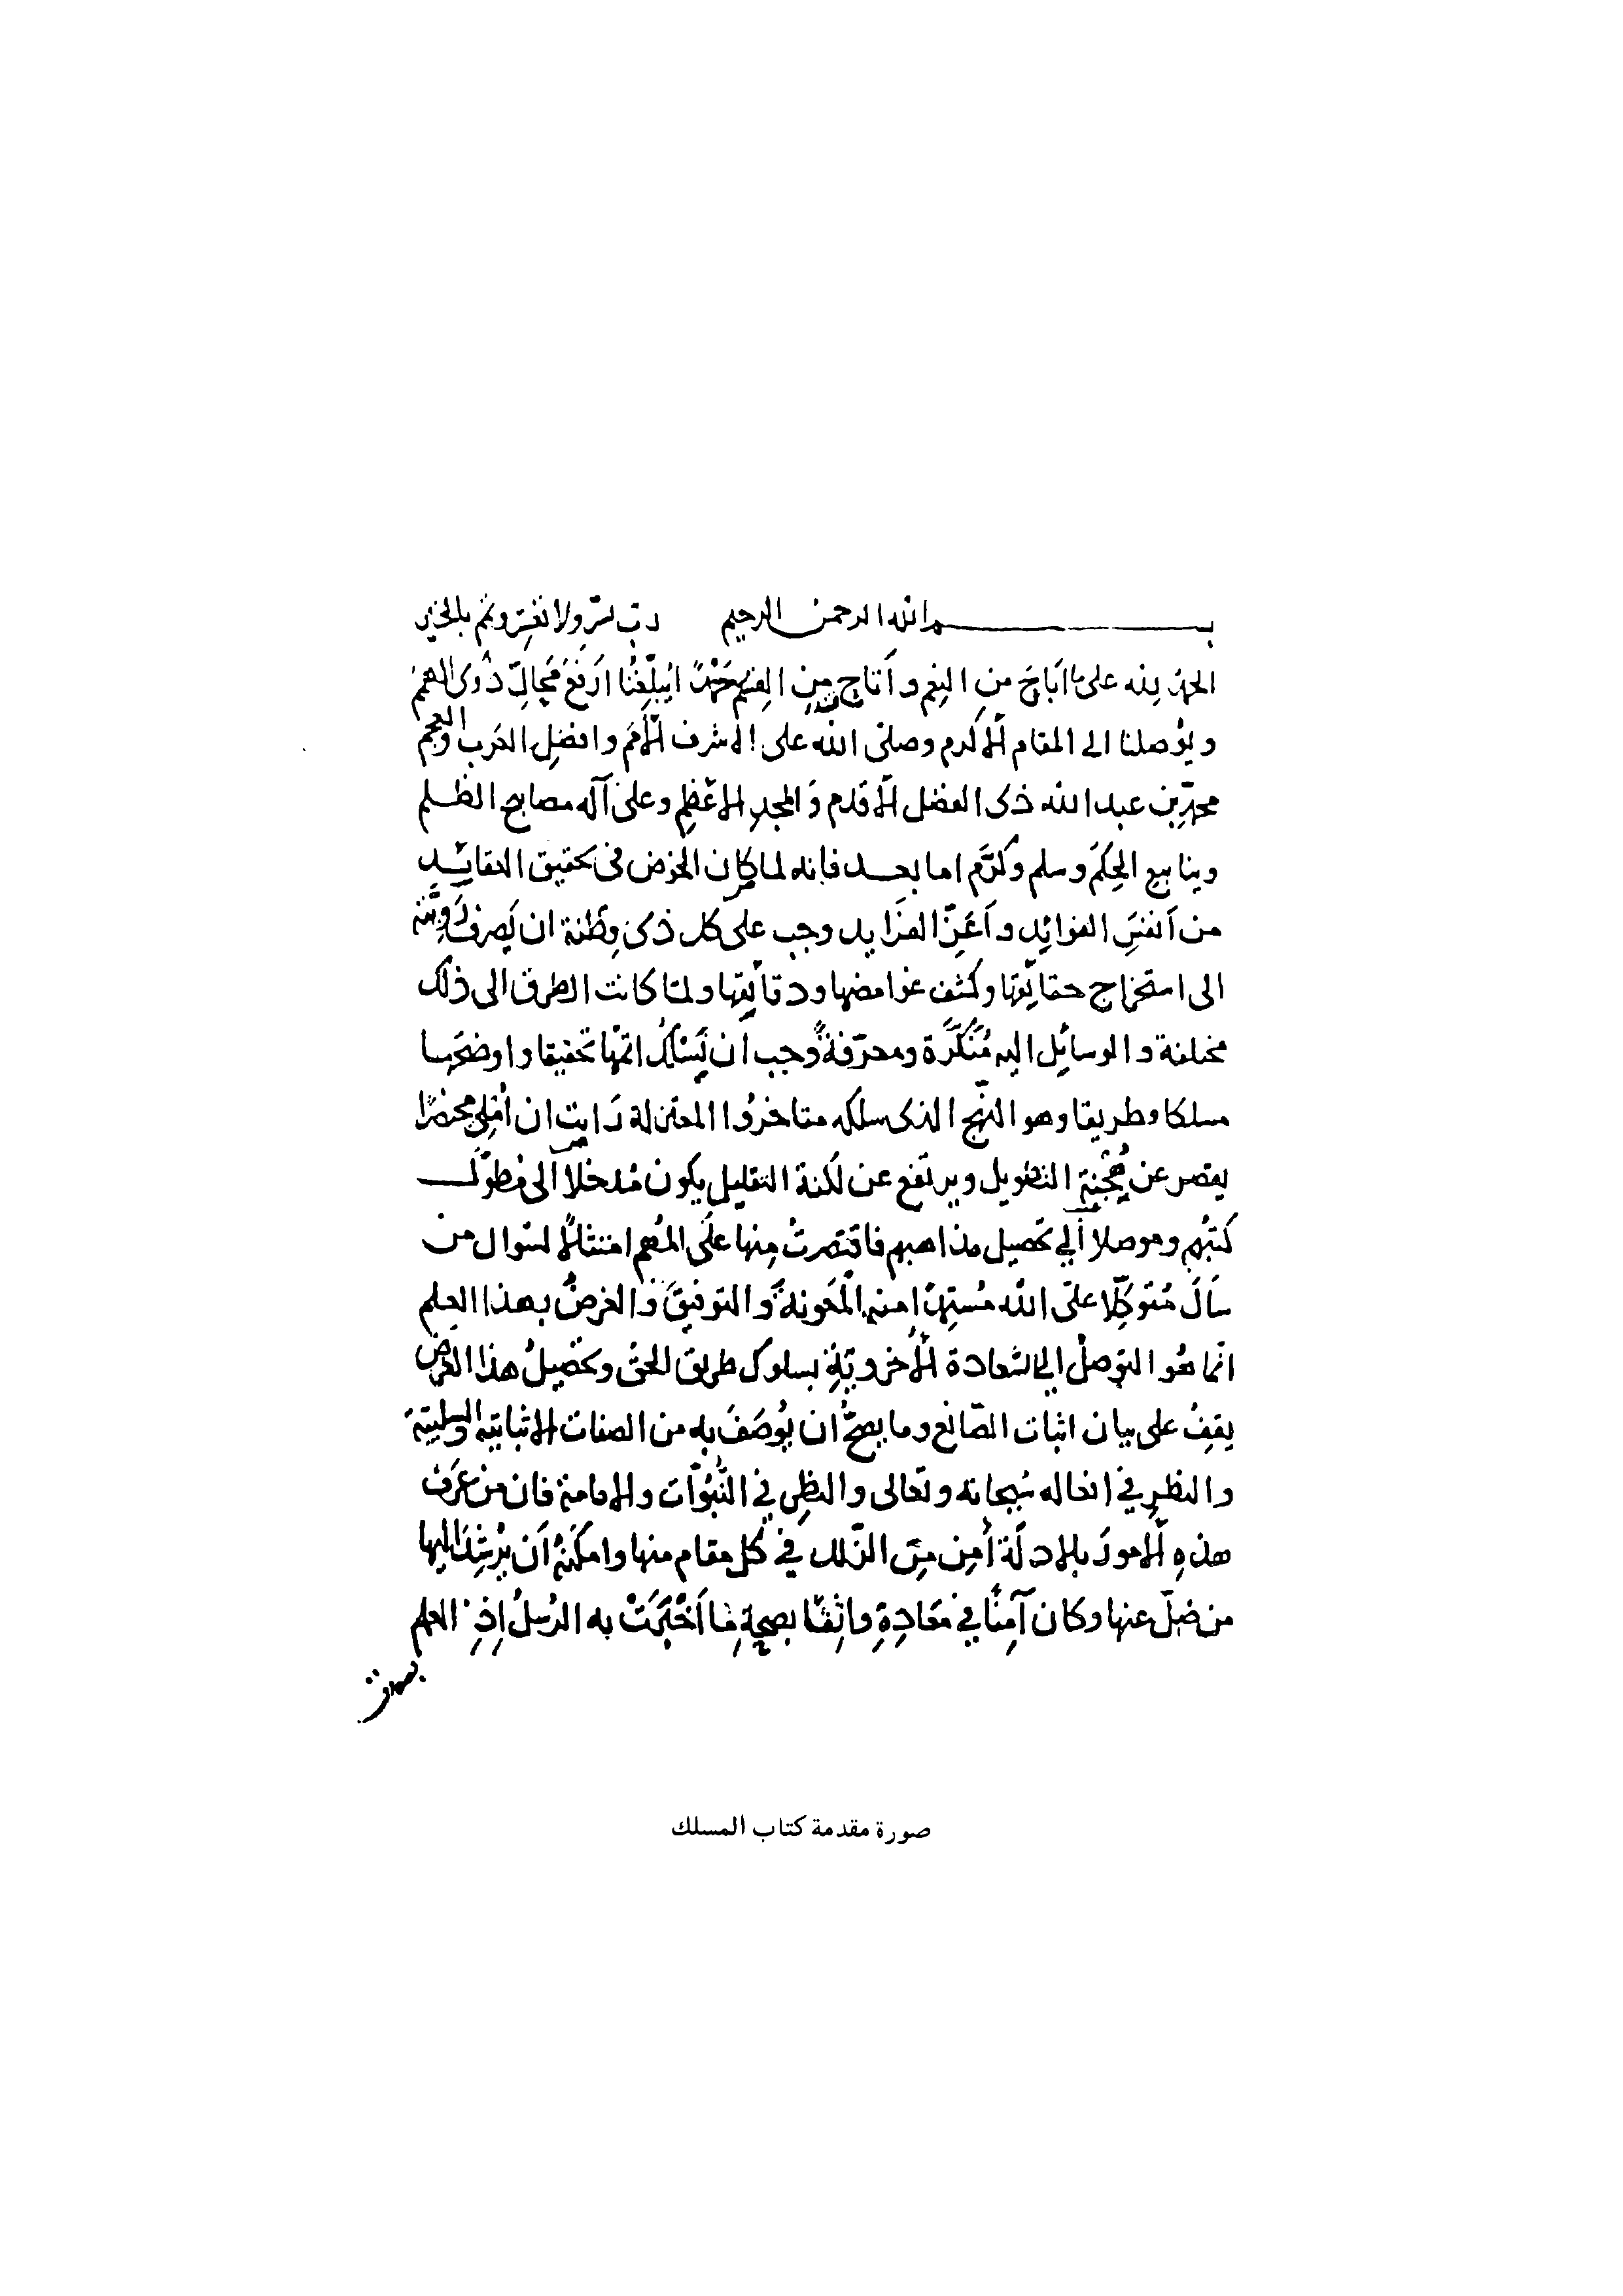 بسم الله الرحمن الرحيم رب يسر ولا تعسر وتمم بالخير
الحمد لله على ما اَباحَ من النِعم و اَتاح مِن القِسَم حَمْدًا يُبلِّغُنا اَرْفَعَ مَجالِ ذَوى الهمم
و يُوصلنا الى المقام الاكرم وصلى الله على اشرف الاُمَم وافضلِ العَرب والعجم
محمدِ بن عبد الله ذى الفضل الاَقدم وَالمجدِ الاَعْظمِ وعلى آله مصابيح الظلم
وينابيع الحِكَم وسلم وكرَّم اما بعد فانه لما كان الخوض فى تحقيق العقائد
من اَنفسِ الفوائِد واَعَزِّ الفَرَايد وجب على كل ذى فِطْنة ان يَصرف رَوِيَّته
الى استخراج حقائقها وكشف غوامضها ودقائِقها ولمّا كانت الطرق الى ذلك
مختلفة والوسائل اليه مُنَكَّرَة ومعرّفةً وجب اَن يَسْلُكَ اتمّها تحقيقا واوضَحَها
مسلكا وطريقا وهو النّهج الذى سلكه متاخرُوا المعتزلة رَايت ان اُمْلِىَ مختصرًا
يقصر عن هُجْنَةِ التطويل ويرتفع عن لُكنة التقليل يكون مُدخلا الى مُطوّل
كتبُهم وموصلا الى تحصيل مذاهبهم فاقتصرتُ مِنها علَى المُهم امتثالًا لسُوال من
سَاَلَ مُتوكِّلا علىَ الله مُستمِدًّا منه المَعُونةَ والتوفيقَ وَالغرضُ بهذا العلم
انّما هُو التوصلُ الى السّعادة الاُخرويّةِ بسلوك طريق الحق وتحصِيلُ هذا الغرض
يقِفُ على بيان اثبات الصّانع وما يصحُّ ان يُوصَفَ به من الصفات الاثباتيّه والسلبيّة
والنظرِ فى افعاله سُبحانه وتعالى والنظرِ فى النُّبُوّات والامامة فان من عَرَف
هذهِ الامورَ بالادلّة اَمِن مِنَ الزّلل فى كل مقام منها وامكَنهُ اَن يُرشِدَ اليها
من ضلّ عنها وكان آمِنًا فى مَعَادِهِ واثِقًا بصحةِ مَا اَخْبَرَتْ به الرُسلُ اِذِ العلم
بصدق
صورة مقدمة كتاب المسلك